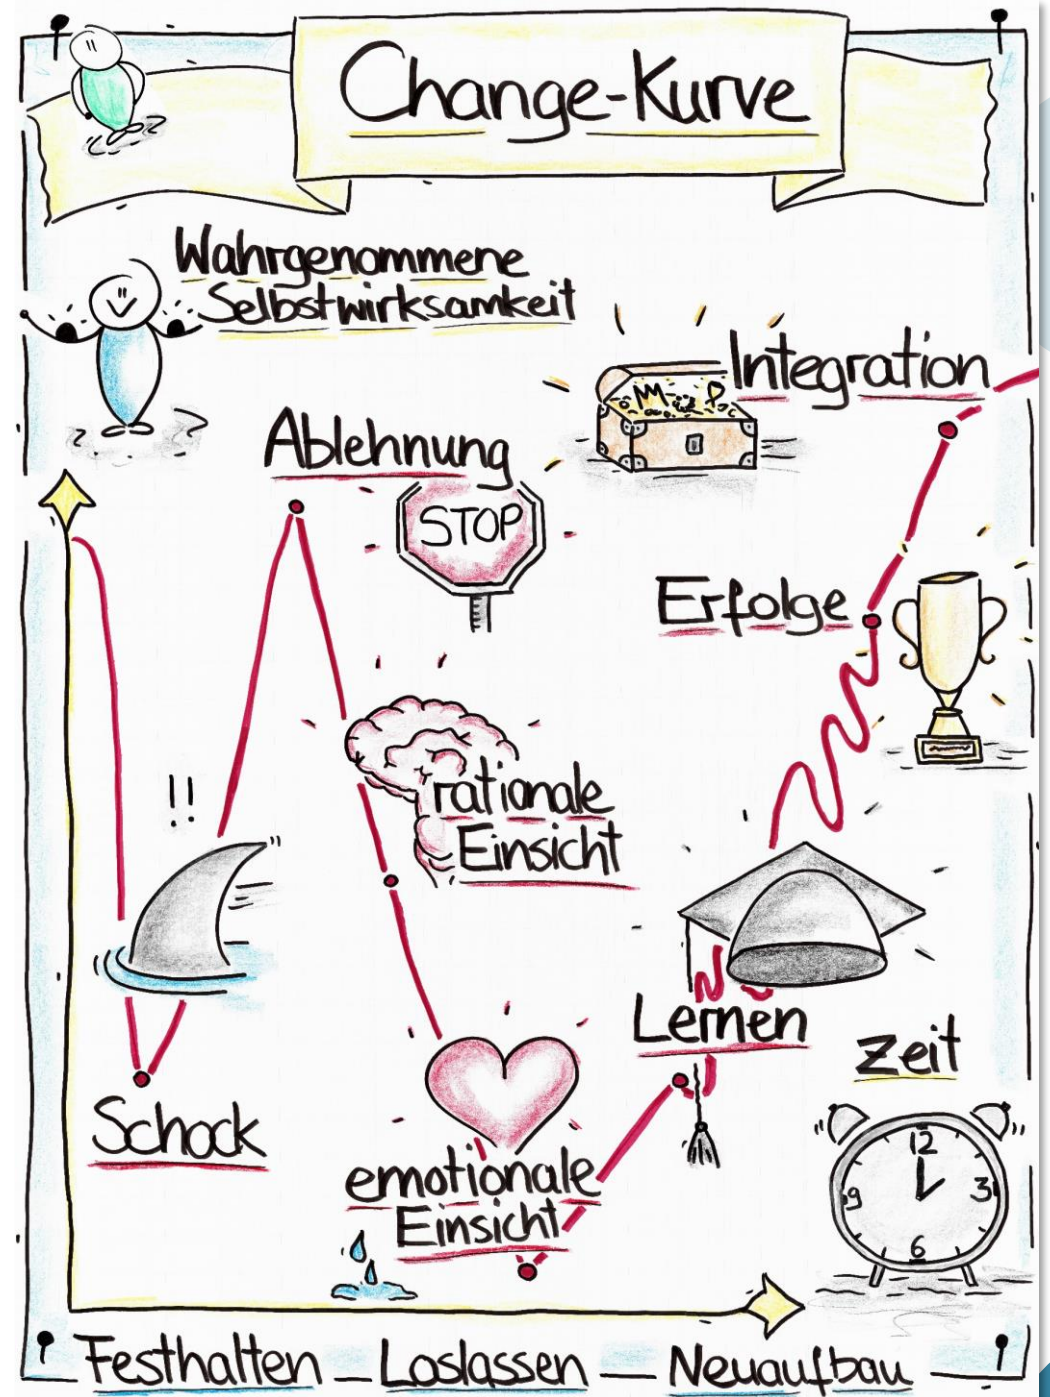 Change-Kurve
Wahrgenommene
Selbstwirksamkeit
Integration
Ablehnung
STOP
Erfolge
!!
rationale
Einsicht
Lernen
Zeit
Schock
emotionale
Einsicht
12
9
3
6
Festhalten – Loslassen – Neuaufbau